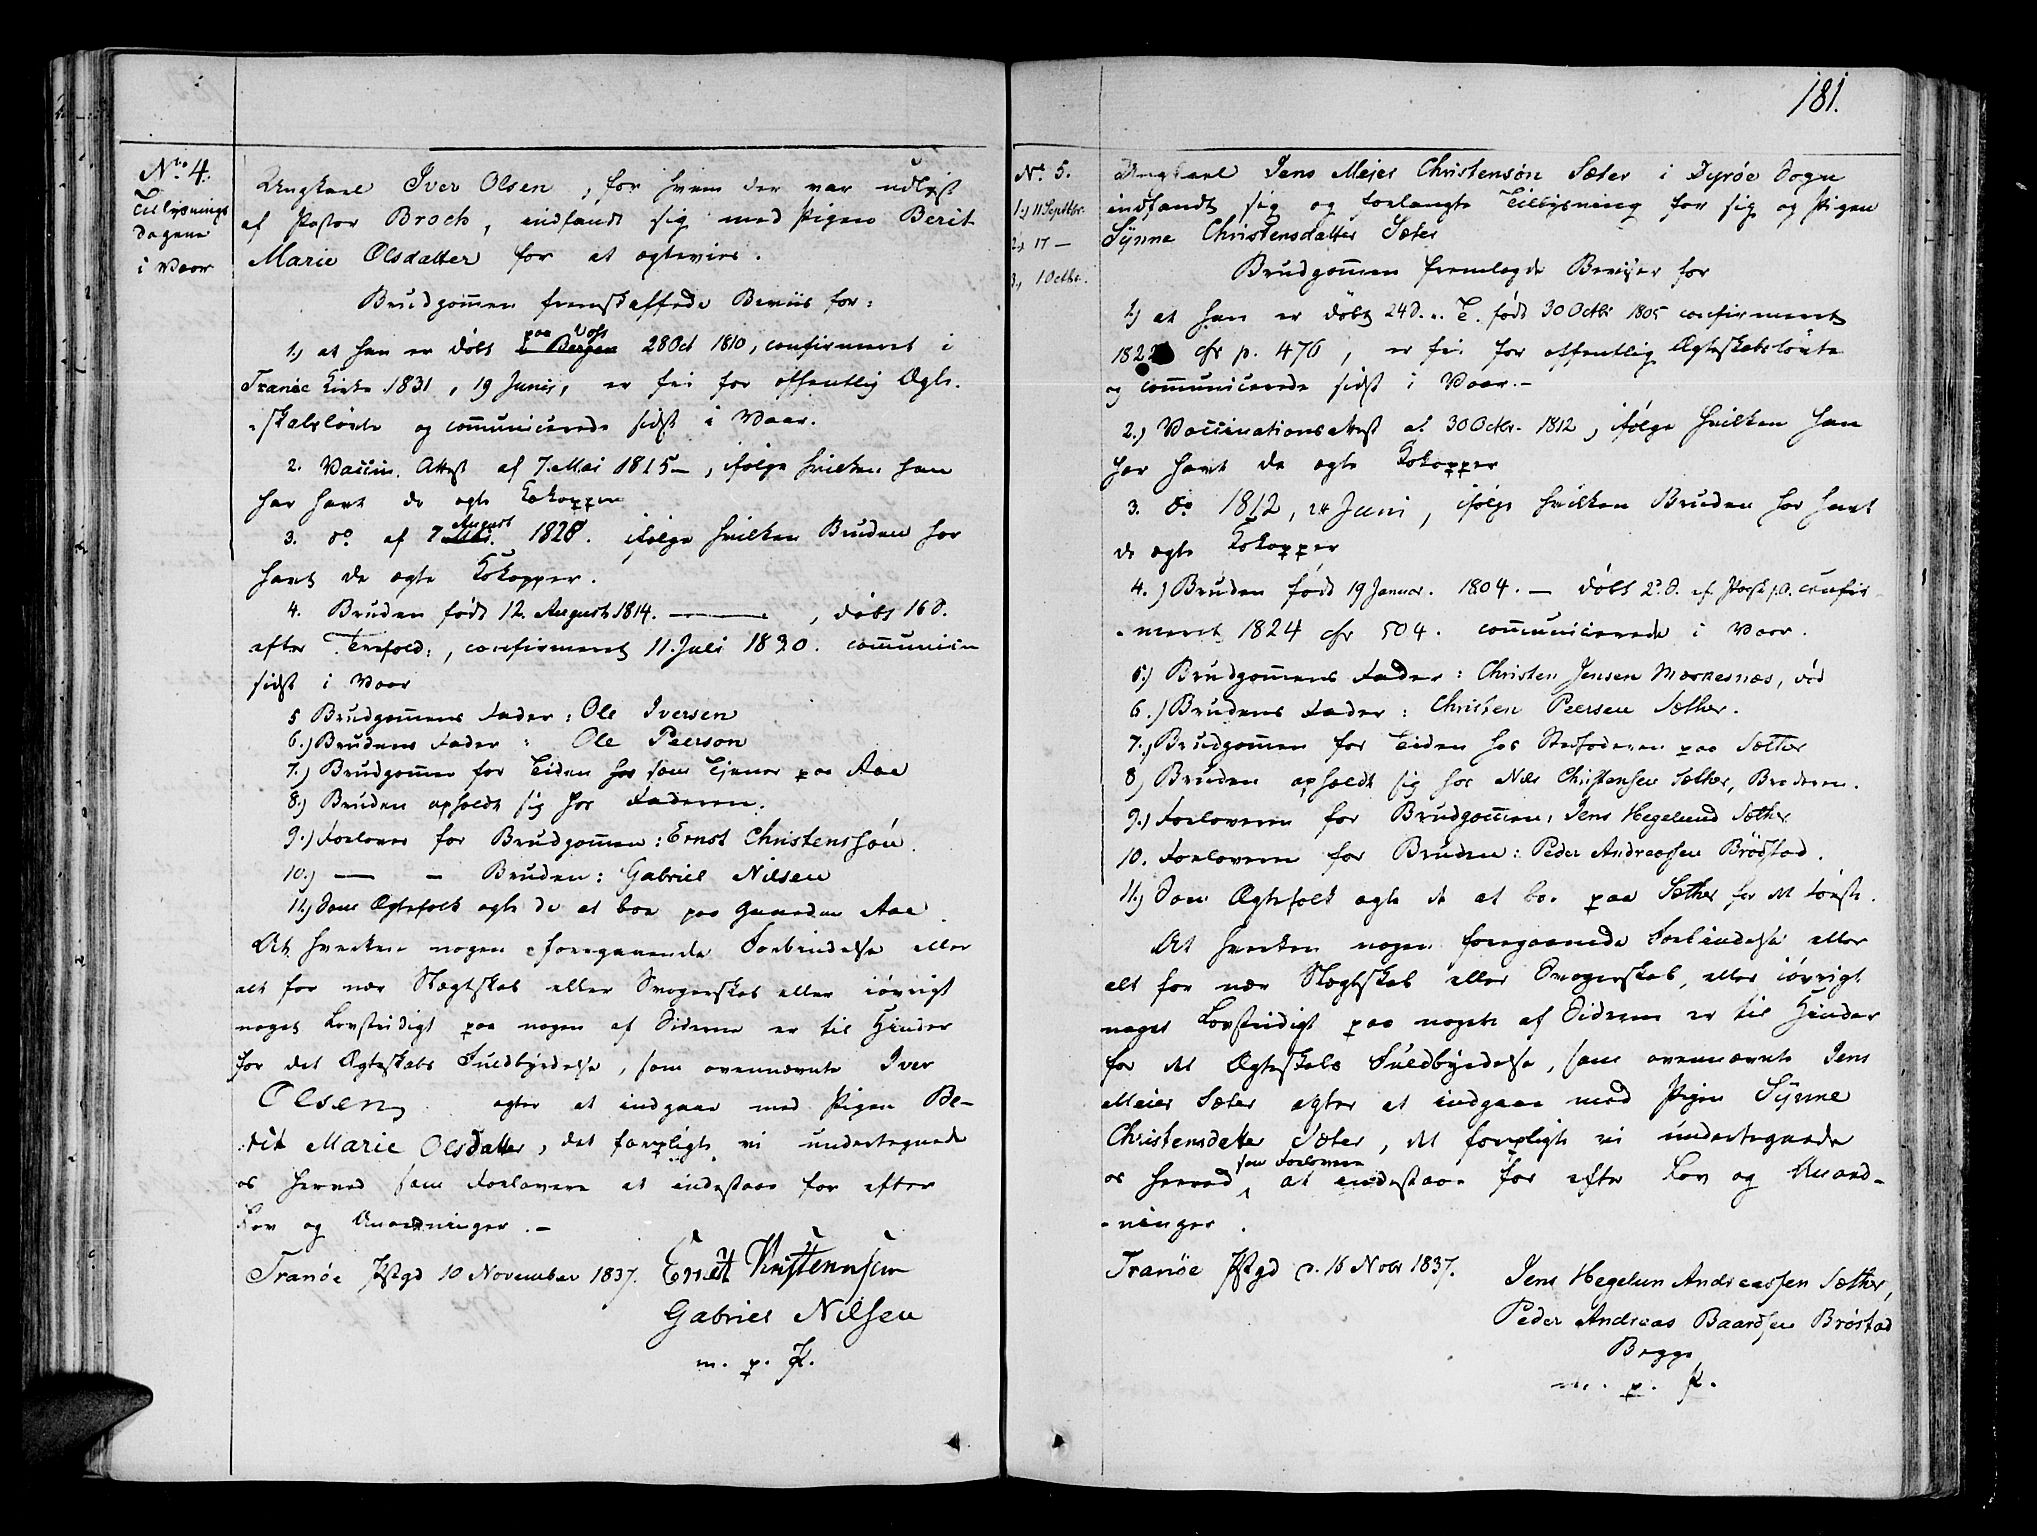 No. 4.
Tillysnings
dagene
i Vaar
Ungkarl Iver Olsen, for hvem der var udlyst
af Pastor Broch, indfandt sig med Pigen Berit
Marie Olsdatter for at egtevies.
Brudgom̄en fremskaffede Beviis for:
1.) at han er döbt i Bergen paa Vos 28 Oct 1810, confirmeret i
Tranöe Kirke 1831, 19 Junii, er fri for offentlig Ægte-
skabslövte og com̄unicerede sidst i Vaar.
2. Vaccin. Attest af 7. Mai 1815 –, ifølge hvilken han
har havt de ægte Kokopper
3. do af 7 Mai. August 1820. ifølge hvilken Bruden har
havt de ægte Kokopper.
4. Bruden född 12. August 1814. ——, döbt 16 S.
efter Trefold:, confirmeret 11. Juli 1830. com̄unicer
sidst i Vaar
5 Brudgom̄ens Fader: Ole Iversen
6.) Brudens Fader : Ole Peerson
7.) Brudgom̄en for Tiden har som Tjener paa Aae
8.) Bruden opholdt sig hos Faderen.
9.) Forlover for Brudgom̄en: Ernst Christenssön.
10.) — – Bruden: Gabriel Nilsen
11.) Som Ægtefolk agte de at boe paa Gaarden Aae.
At hverken nogen foregaaende Forbindelse eller
alt for nær Slægtskab eller Svogerskab eller iövrigt
noget Lovstridigt paa nogen af Siderne er til Hinder
for det Ægteskabs Fuldbyrdelse, som ovennævnte Iver
Olsen agter at indgaae med Pigen Be-
rit Marie Olsdatter, det forpligte vi undertegnede
os herved som Forlovere at indestaae for efter
Lov og Anordninger. –
Tranöe Pstgd 10 November 1837. Ernst Kristennsen
Gabriel Nilsen
m. p. P.
181.
No. 5.
1.) 11 Septbr.
2.) 17 –
3, 1 Octbr.
Ungkarl Jens Mejer Christensön Sæter i Dyröe Sogn
indfandt sig og forlangte Tillysning for sig og Pigen
Synne Christensdatter Sæter
Brudgom̄en fremlagde Beviser for
1.) at han er döbt 24 S. e. T. född 30 Octbr 1805 confirmeret
1822 cfr p. 476, er fri for offentlig Ægteskabslövte
og com̄unicerede sidst i Vaar. –
2.) Vaccinationsattest af 30 Octbr. 1812, ifølge hvilken han
har havt de ægte Kokopper
3. do 1812, 24 Juni, ifølge hvilken Bruden har havt
de ægte Kokopper
4.) Bruden född 19 Januar. 1804. – döbt 2d. S. ef Paask p. D. confir-
meret 1824 cfr 504. com̄unicerede i Vaar.
5.) Brudgom̄ens Fader: Christen Jensen Moksnesnæs, död
6.) Brudens Fader: Christen Peersen Sæther.
7.) Brudgom̄en for Tiden hos Stedfaderen paa Sæther
8) Bruden opholdt sig hos Niels Christensen Sæther, Broderen.
9.) Forloveren for Brudgom̄en: Jens Hegelund Sæther
10. Forloveren for Bruden: Peder Andreassen Brödstad.
11.) Som Ægtefolk agte de at boe paa Sæther for det förste.
At hverken nogen foregaaende Forbindelse eller
alt for nær Slægtskab eller Svogerskab, eller iövrigt
noget Lovstridigt paa nogen af Siderne er til Hinder
for det Ægteskabs Fuldbyrdelse, som ovennævnte Jens
Meier Sæter agter at indgaae med Pigen Synne
Christensdatter Sæter, det forpligte vi undertegnede
os herved som Forlovere at indestaae for efter Lov og Anord-
ninger.
Tranöe Pstgd d. 16 Novbr 1837.
Jens Hegelun Andreassen Sæther,
Peder Andreas Baardsen Bröstad
Begge
m. p. P.